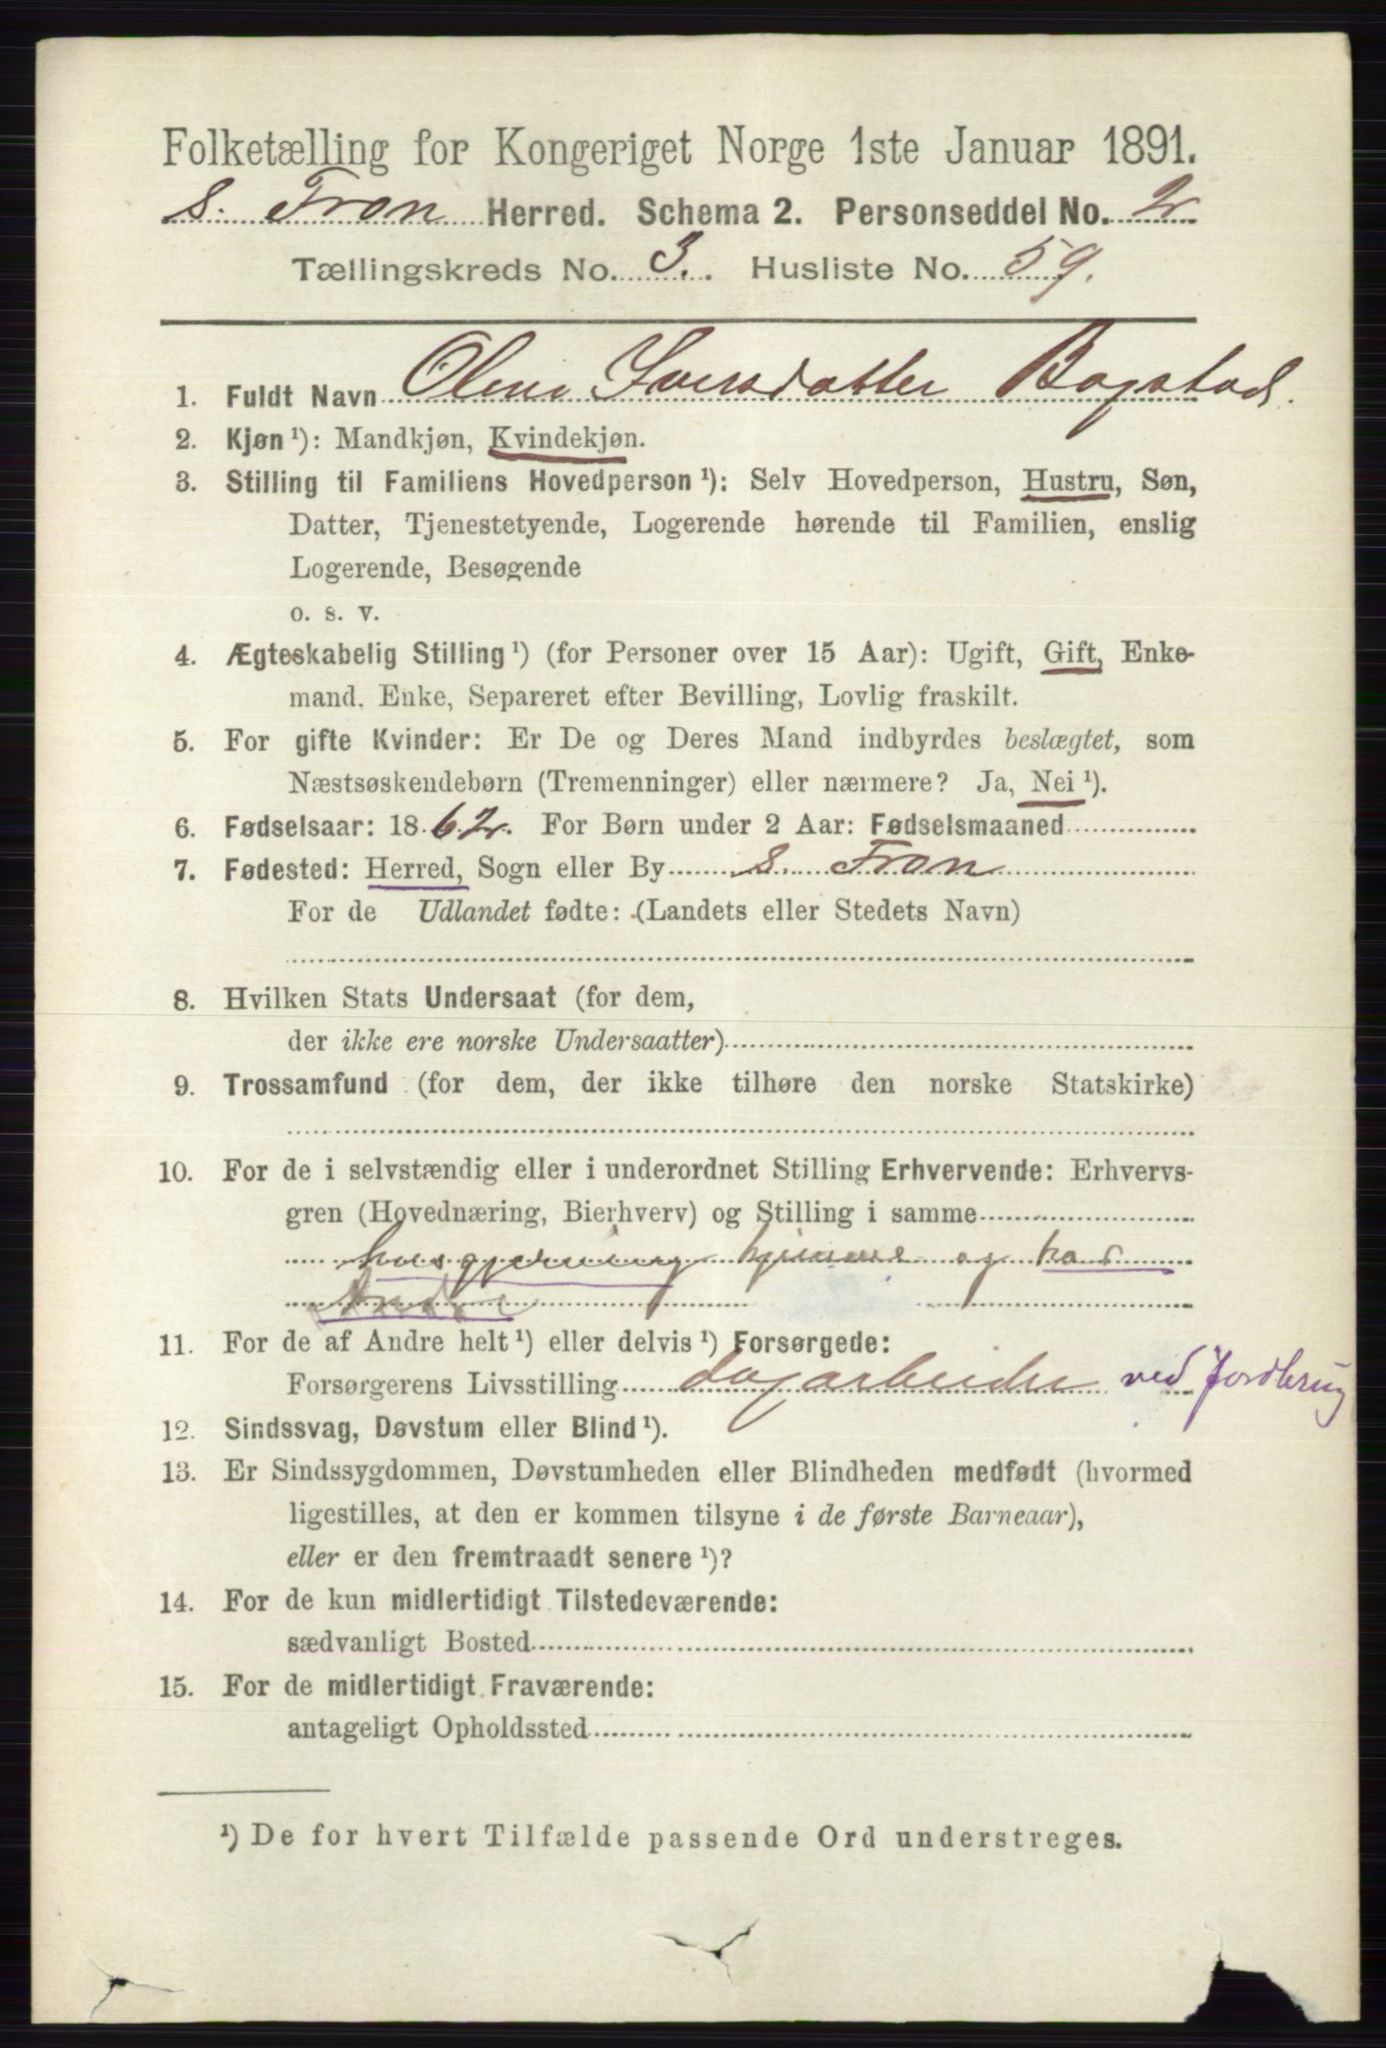 Folketælling for Kongeriget Norge 1ste Januar 1891.
S. Fron Herred. Schema 2. Personseddel No. 2
Tællingskreds No. 3. Husliste No. 59.
1. Fuldt Navn Olene Iversdatter Bogstad.
2. Kjøn ¹): Mandkjøn, Kvindekjøn.
3. Stilling til Familiens Hovedperson ¹): Selv Hovedperson, Hustru, Søn,
Datter, Tjenestetyende, Logerende hørende til Familien, enslig
Logerende, Besøgende
o. s. v.
4. Ægteskabelig Stilling ¹) (for Personer over 15 Aar): Ugift, Gift, Enke-
mand, Enke, Separeret efter Bevilling, Lovlig fraskilt.
5. For gifte Kvinder: Er De og Deres Mand indbyrdes beslægtet, som
Næstsøskendebørn (Tremenninger) eller nærmere? Ja, Nei ¹).
6. Fødselsaar: 1862. For Børn under 2 Aar: Fødselsmaaned
7. Fødested: Herred, Sogn eller By S. Fron
For de Udlandet fødte: (Landets eller Stedets Navn)
8. Hvilken Stats Undersaat (for dem,
der ikke ere norske Undersaatter)
9. Trossamfund (for dem, der ikke tilhøre den norske Statskirke)
10. For de i selvstændig eller i underordnet Stilling Erhvervende: Erhvervs-
gren (Hovednæring, Bierhverv) og Stilling i samme
husgjerning hjemme og hos
Andre
11. For de af Andre helt ¹) eller delvis ¹) Forsørgede:
Forsørgerens Livsstilling dagarbeider ved Jordbrug
12. Sindssvag, Døvstum eller Blind ¹).
13. Er Sindssygdommen, Døvstumheden eller Blindheden medfødt (hvormed
ligestilles, at den er kommen tilsyne i de første Barneaar),
eller er den fremtraadt senere ¹)?
14. For de kun midlertidigt Tilstedeværende:
sædvanligt Bosted
15. For de midlertidigt Fraværende:
antageligt Opholdssted
¹) De for hvert Tilfælde passende Ord understreges.